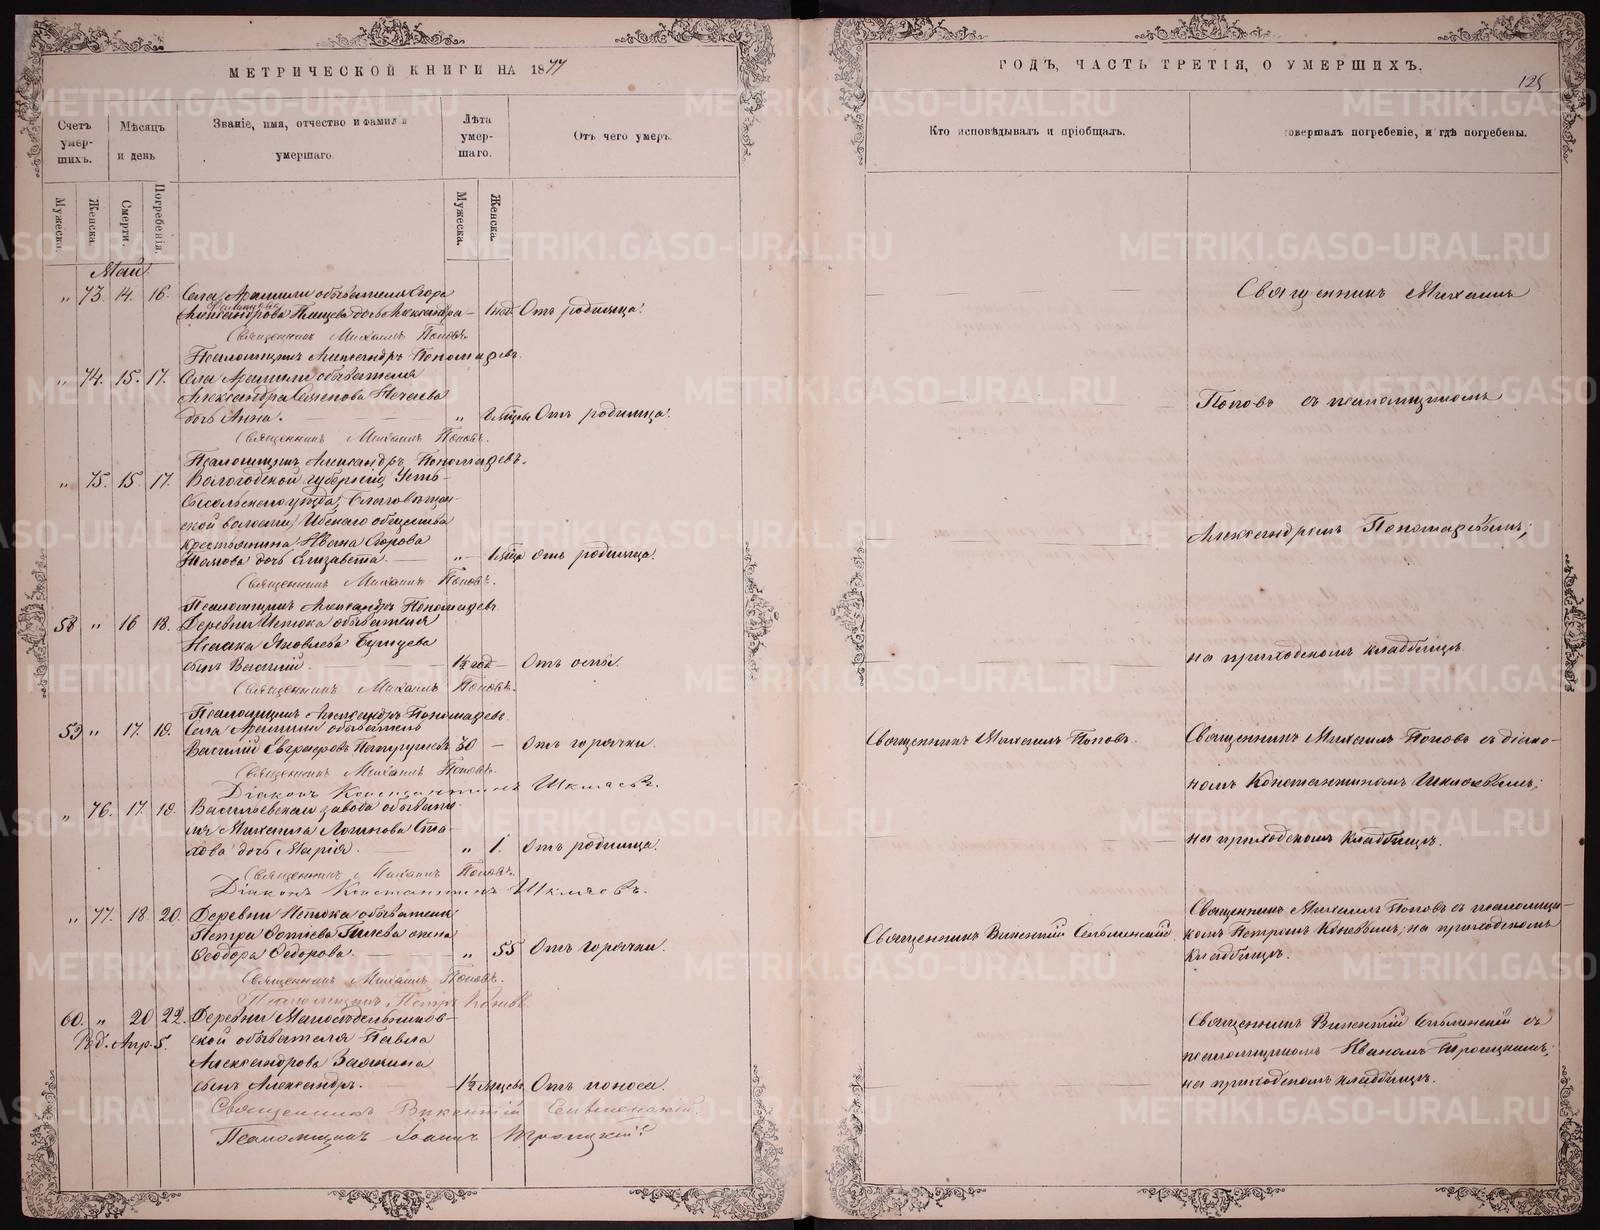 МЕТРИЧЕСКОЙ КНИГИ НА 1877
Счетъ умер-шихъ.
Мѣсяцъ и день
Званіе, имя, отчество и фамилія умершаго.
Лѣта умер-шаго.
Отъ чего умеръ.
Мужеска.
Женска.
Смерти.
Погребенія.
Мужеска.
Женска.
Май
„ 73. 14. 16. Села Арамили обывателя Егора
Александрова дочь Александра — 1 год. Отъ родимца.
Священникъ Михаилъ Поповъ.
Псаломщикъ Александръ Пономаревъ.
„ 74. 15. 17. Села Арамили обывателя
Александра Семенова Нечаева
дочь Анна. „ Отъ родимца.
Священникъ Михаилъ Поповъ.
Псаломщикъ Александръ Пономаревъ.
„ 75. 15. 17. Вологодской губерніи, Усть-
сысольскаго уѣзда, Благовѣщен-
ской волости, Ибскаго общества
крестьянина Ивана Егорова
дочь Елизавета. „ отъ родимца.
Священникъ Михаилъ Поповъ.
Псаломщикъ Александръ Пономаревъ
58 „ 16 18. Деревни Истока обывателя
Исаака Яковлева
сынъ Василій. 1½ год — Отъ оспы.
Священникъ Михаилъ Поповъ.
Псаломщикъ Александръ Пономаревъ.
59 „ 17. 19. Села Арамили обыватель
Василій Евграфовъ 30 — Отъ горячки.
Священникъ Михаилъ Поповъ.
Діаконъ Константинъ Шкляевъ.
„ 76. 17. 19. завода обывате-
ля Михаила Логинова Ста-
хова дочь Марія. „ 1. Отъ родимца.
Священникъ Михаилъ Поповъ.
Діаконъ Константинъ Шкляевъ.
„ 77. 18. 20. Деревни Истока обывателя
Петра жена
Ѳеодора Ѳедорова. „ 55 Отъ горячки.
Священникъ Михаилъ Поповъ.
Псаломщикъ Петръ
60. „ 20 22. Деревни
Род. Апр. 5. ской обывателя Павла
Александрова
сынъ Александръ. 1½ мѣсяц. Отъ поноса.
Священникъ Викентій
Псаломщикъ Іоаннъ Троицкій.
ГОДЪ, ЧАСТЬ ТРЕТІЯ, О УМЕРШИХЪ.
125
Кто исповѣдывалъ и пріобщалъ.
совершалъ погребеніе, и гдѣ погребены.
Священникъ Михаилъ
Поповъ съ псаломщикомъ
Александромъ Пономаревымъ;
на приходскомъ кладбищѣ.
Священникъ Михаилъ Поповъ.
Священникъ Михаилъ Поповъ съ діако-
номъ Константиномъ Шкляевымъ;
на приходскомъ кладбищѣ.
Священникъ Викентій
Священникъ Михаилъ Поповъ съ псаломщи-
комъ Петромъ на приходскомъ
кладбищѣ.
Священникъ Викентій съ
псаломщикомъ Иваномъ Троицкимъ;
на приходскомъ кладбищѣ.
METRIKI.GASO-URAL.RU